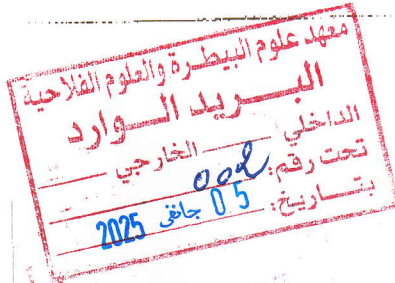 معهد علوم البيطرة والعلوم الفلاحية
البريد الوارد
الداخلي الخارجي
تحت رقم: 002
بتاريخ: 05 جانفي 2025